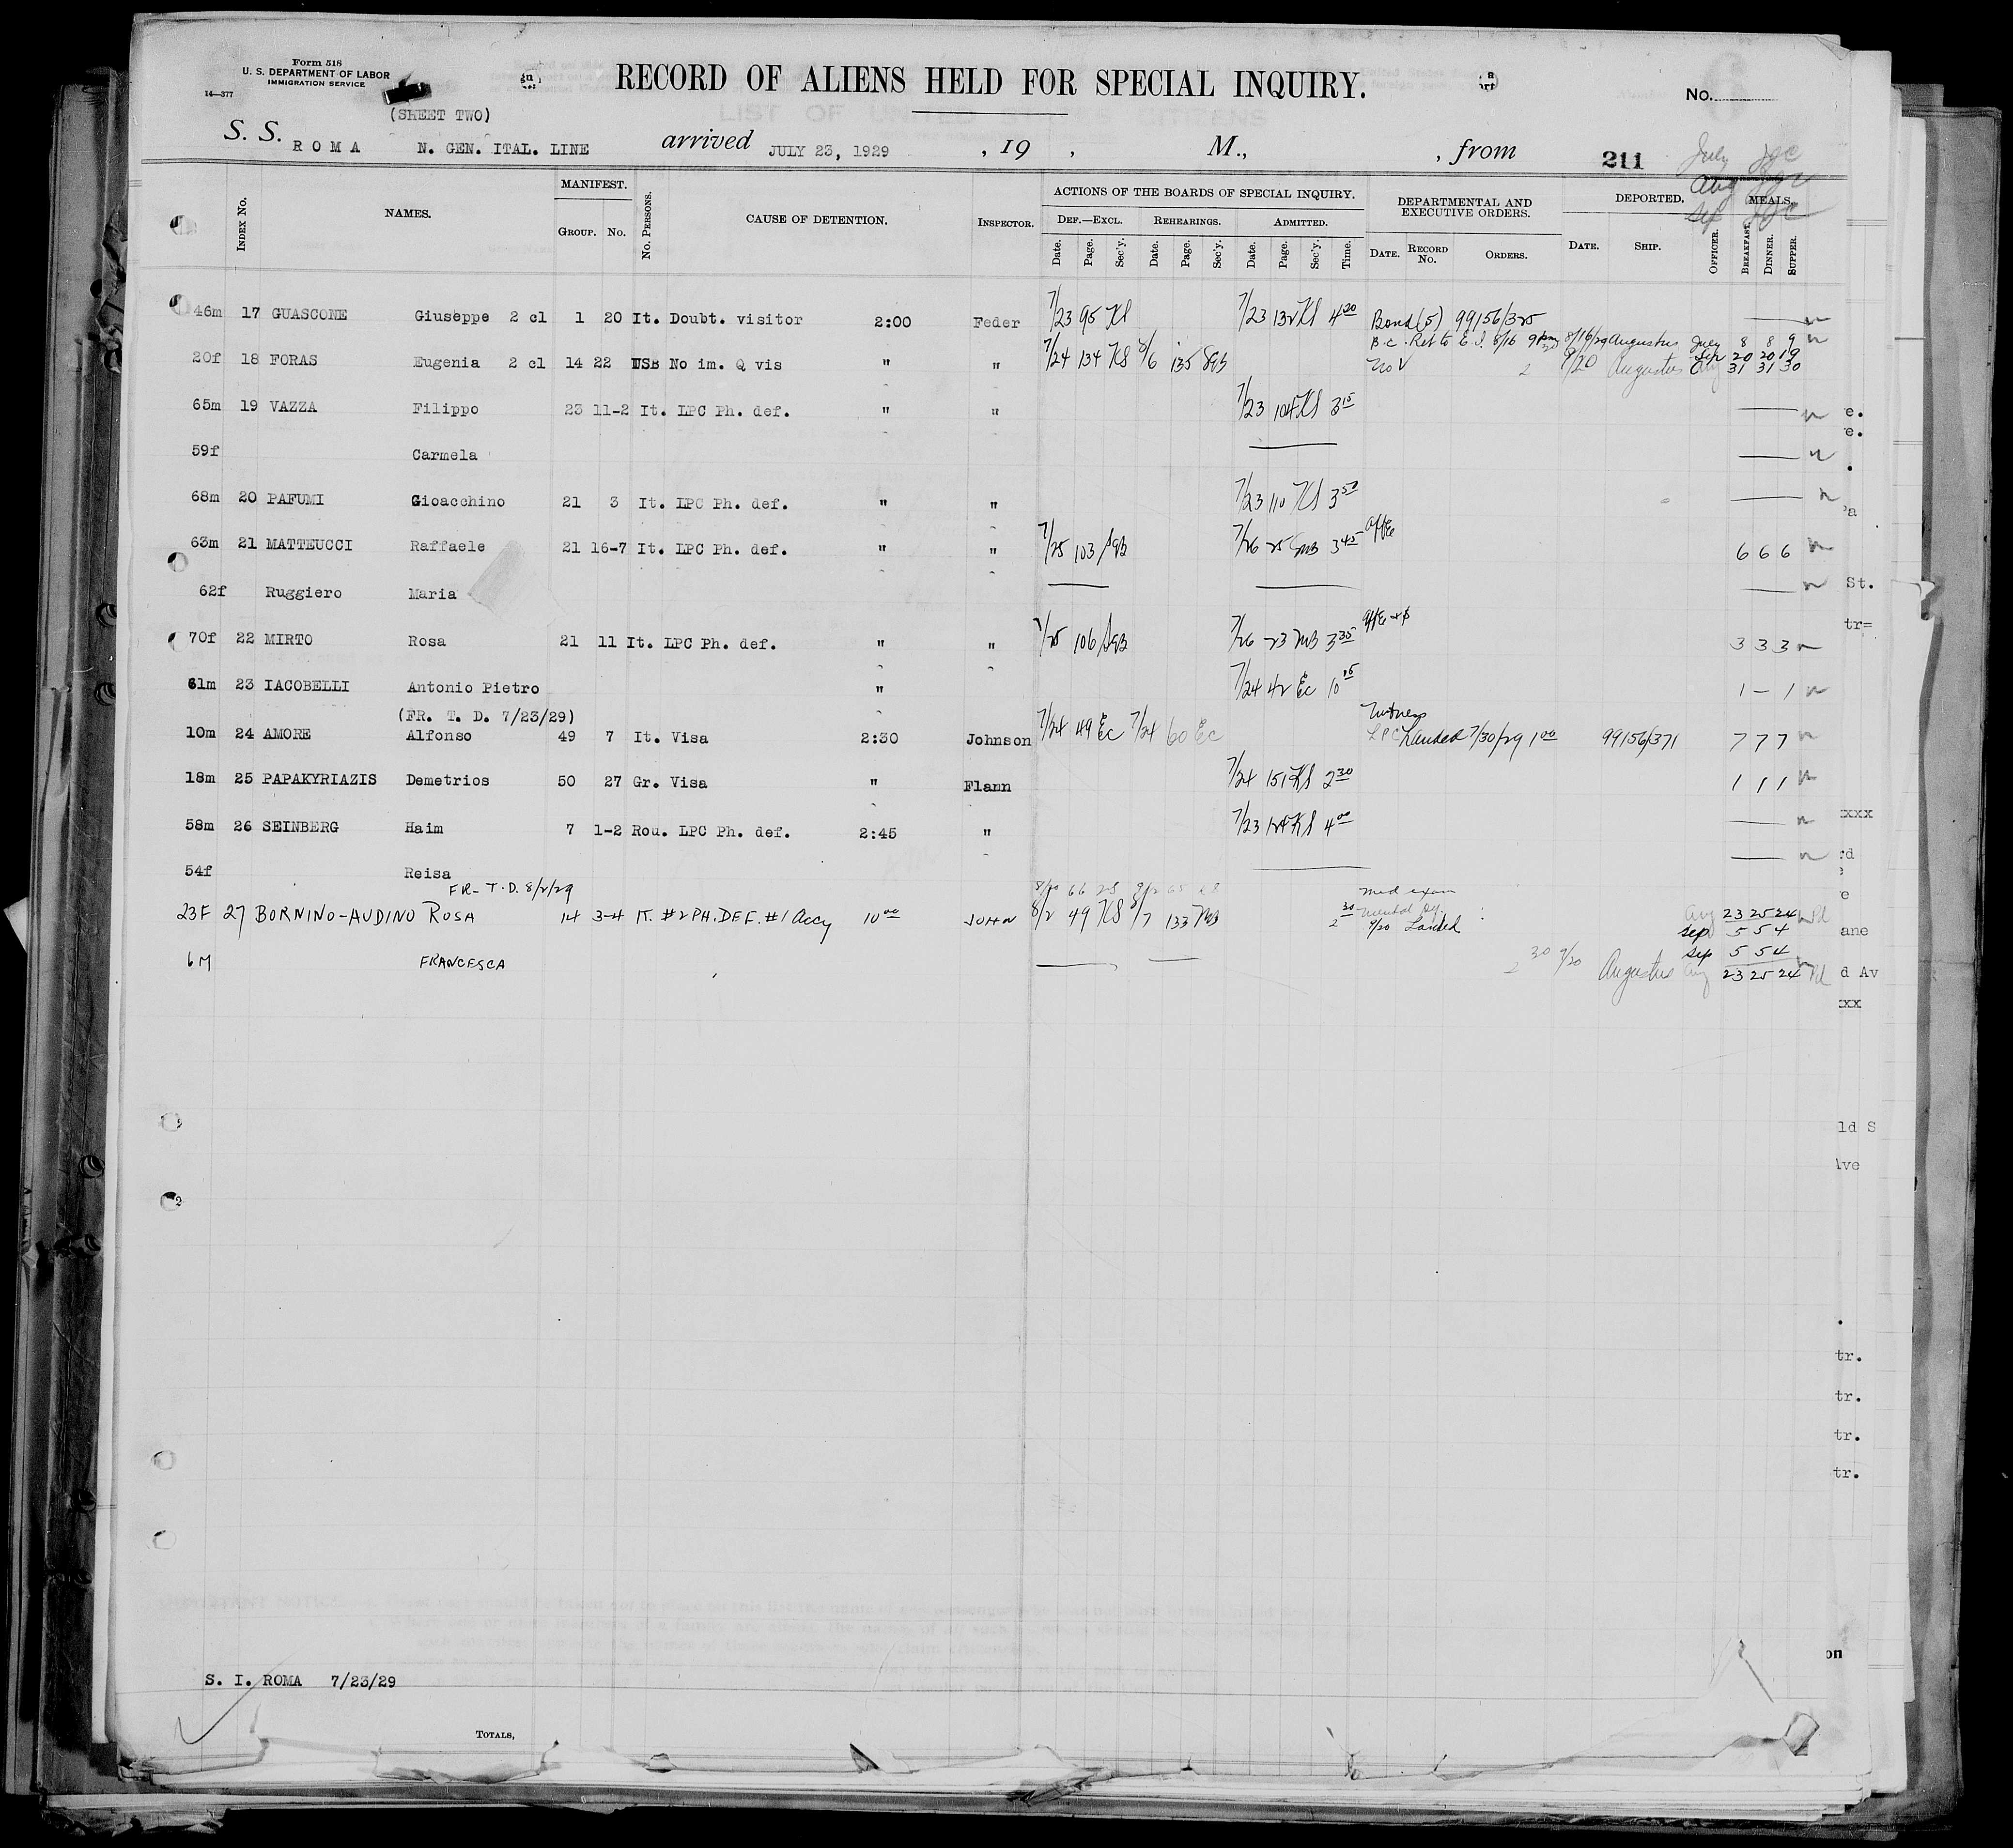 Form 518
U. S. DEPARTMENT OF LABOR
IMMIGRATION SERVICE
14—377
RECORD OF ALIENS HELD FOR SPECIAL INQUIRY.
No.
(SHEET TWO)
S. S. ROMA N. GEN. ITAL. LINE arrived JULY 23, 1929 , 19 , M., , from 211
July
Aug
Sep
INDEX No. NAMES. MANIFEST. GROUP. No. No. PERSONS. CAUSE OF DETENTION. INSPECTOR. ACTIONS OF THE BOARDS OF SPECIAL INQUIRY. DEPARTMENTAL AND EXECUTIVE ORDERS. DEPORTED. MEALS.
DEF.—EXCL. REHEARINGS. ADMITTED.
Date. Page. Sec'y. Date. Page. Sec'y. Date. Page. Sec'y. Time. DATE. RECORD No. ORDERS. DATE. SHIP. OFFICER. BREAKFAST. DINNER. SUPPER.
46m 17 GUASCONE Giuseppe 2 cl 1 20 It. Doubt. visitor 2:00 Feder 7/23 95 KS 7/23 132 KS 4 20 Bond (5) 99156/325
B.C. Ret to E.I. 8/16 8/16/29 Augustus July 8 8 9
20f 18 FORAS Eugenia 2 cl 14 22 USB No im. Q vis " " 7/24 134 KS 8/6 135 9/20 Augustus Sep 20 20 19
Aug 31 31 30
65m 19 VAZZA Filippo 23 11-2 It. LPC Ph. def. " " 7/23 104 KS 3 15
59f Carmela
68m 20 PAFUMI Gioacchino 21 3 It. LPC Ph. def. " " 7/23 110 KS 3 50
63m 21 MATTEUCCI Raffaele 21 16-7 It. LPC Ph. def. " " 7/25 103 7/26 25 MB 3 45 6 6 6
62f Ruggiero Maria
70f 22 MIRTO Rosa 21 11 It. LPC Ph. def. " " 7/25 106 7/26 23 MB 3 35 3 3 3
61m 23 IACOBELLI Antonio Pietro " 7/24 42 Ec 10 1 – 1
(FR. T. D. 7/23/29)
Witness
10m 24 AMORE Alfonso 49 7 It. Visa 2:30 Johnson 7/24 49 Ec 7/24 60 Ec LPC Landed 7/30/29 1 00 99156/371 7 7 7
18m 25 PAPAKYRIAZIS Demetrios 50 27 Gr. Visa " Flann 7/24 151 KS 2 30 1 1 1
58m 26 SEINBERG Haim 7 1-2 Rou. LPC Ph. def. 2:45 " 7/23 124 KS 4 00
54f Reisa
FR- T.D. 8/2/29
med exam
23F 27 BORNINO-AUDINO ROSA 14 3-4 It. #2 PH. DEF. #1 Accy 10 00 JOHN 8/2 49 KS 8/7 133 MB 2 30 9/20 Landed Aug 23 25 24
Sep 5 5 4
Sep 5 5 4
6M FRANCESCA 2 30 9/20 Augustus Aug 23 25 24
S. I. ROMA 7/23/29
TOTALS,
e.
e.
St.
tr=
xxx
rd
e
ane
d Av
xx
ld S
Ave
tr.
tr.
tr.
tr.
on